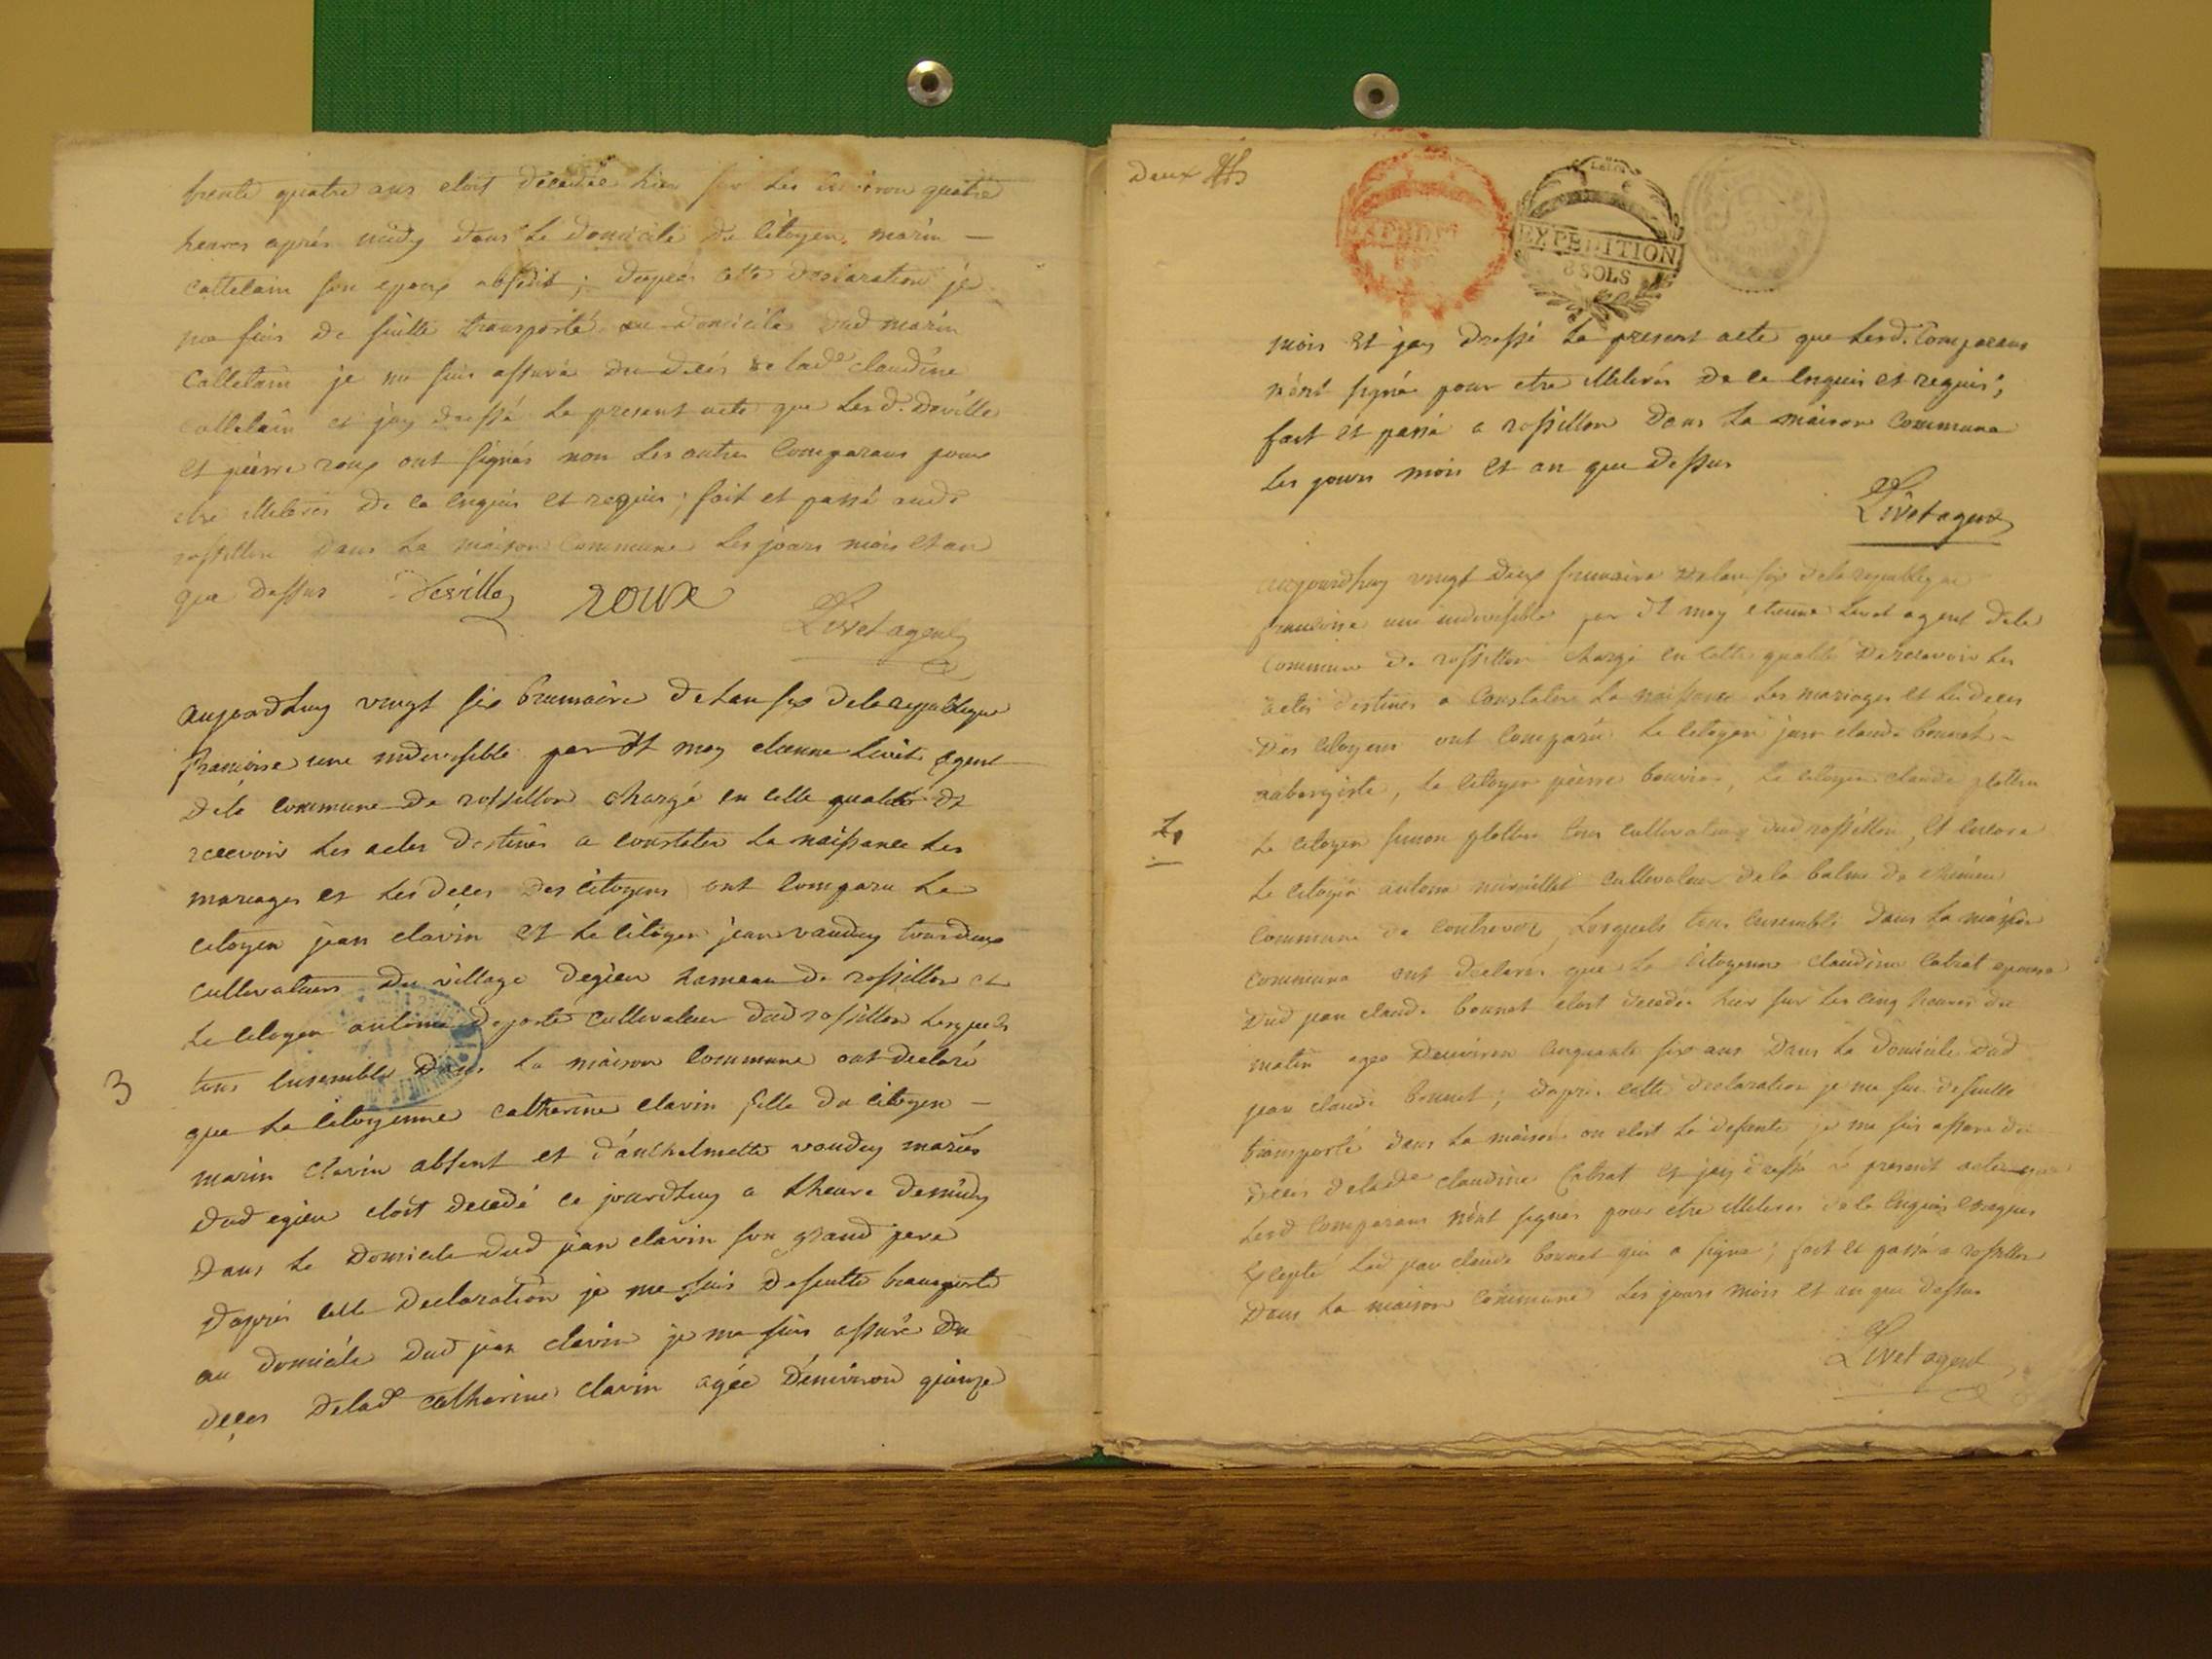 trente quatre ans etoit decedée hier sur les environ quatre
heures après midy dans le domicile du citoyen marin —
cattelain son epoux absent ; dapres cette declaration je
me suis de suitte transporté au domicile dud marin
Cattelain je me suis assuré du decés de lade claudine
cattelain et jay dressé le present acte que lesd. deville
et pierre roux ont signés non les autres comparans pour
etre illiterés de ce enquis et requis ; fait et passé aud
rossillon dans la maison commune les jours mois et an
que dessus Deville roux
Livet agent
aujourdhuy vingt six brumaire de lan six de la republique
francoise une indivisible par dt moy etienne Livet agent
de la commune de rossillon chargé en cette qualité de
recevoir les actes destinés a constater la naissance les
mariages et les deces des citoyens ont comparu le
citoyen jean clavin et le citoyen jean vaudey tous deux
cultivateurs du village degieu hameau de rossillon et
le citoyen antoine cultivateur dud rossillon lesquels
3
tous ensemble dans la maison commune ont declaré
que la citoyenne catherine clavin fille du citoyen —
marin clavin absent et d'anthelmette vaudey mariés
dud egieu etoit decedé ce jourdhuy a lheure de midy
dans le domicile dud jean clavin son grand pere
dapres cette declaration je me suis de suitte transporté
au domicile dud jean clavin je me suis assuré du
deces de lade catherine clavin agée d'environ quinze
Deux
EXPEDITION
8 SOLS
mois et jay dressé le present acte que lesd. comparans
n'ont signés pour etre illiterés de ce enquis et requis ;
fait et passé a rossillon dans la maison commune
les jours mois et an que dessus
Livet agent
aujourdhuy vingt deux frimaire de lan six de la republique
francoise une indivisible par dt moy etienne Livet agent de la
commune de rossillon chargé en cette qualité de recevoir les
actes destinés a constater la naissance les mariages et les deces
des citoyens ont comparu le citoyen jean claude bonnet —
aubergiste, le citoyen pierre bouvier, le citoyen claude
4
le citoyen simon tous cultivateurs dud rossillon, et encore
le citoyen antoine cultivateur de la balme de
commune de contrevoz, lesquels tous ensemble dans la maison
commune ont declarés que la citoyenne claudine epouse
dud jean claude bonnet etoit decedée hier sur les cinq heures du
matin agée denviron cinquante six ans dans le domicile dud
jean claude bonnet ; dapres cette declaration je me suis de suitte
transporté dans la maison ou etoit la defunte je me suis assuré du
deces de lade claudine et jay dressé le present acte que
lesd comparans n'ont signés pour etre illiterés de ce enquis et requis
excepté led jean claude bonnet qui a signé ; fait et passé a rossillon
dans la maison commune les jours mois et an que dessus
Livet agent